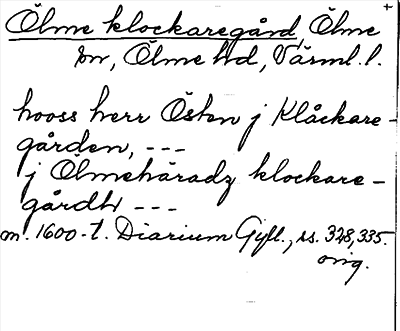 Ölme klockaregård, Ölme
sn, Ölme hd, Värml. l.
hooss herr Östen j Klåckare-
gården, ---
j Ölmehäradz klockare-
gårdh ---
m. 1600-t. Diarium Gyll., ss. 328, 335.
orig.